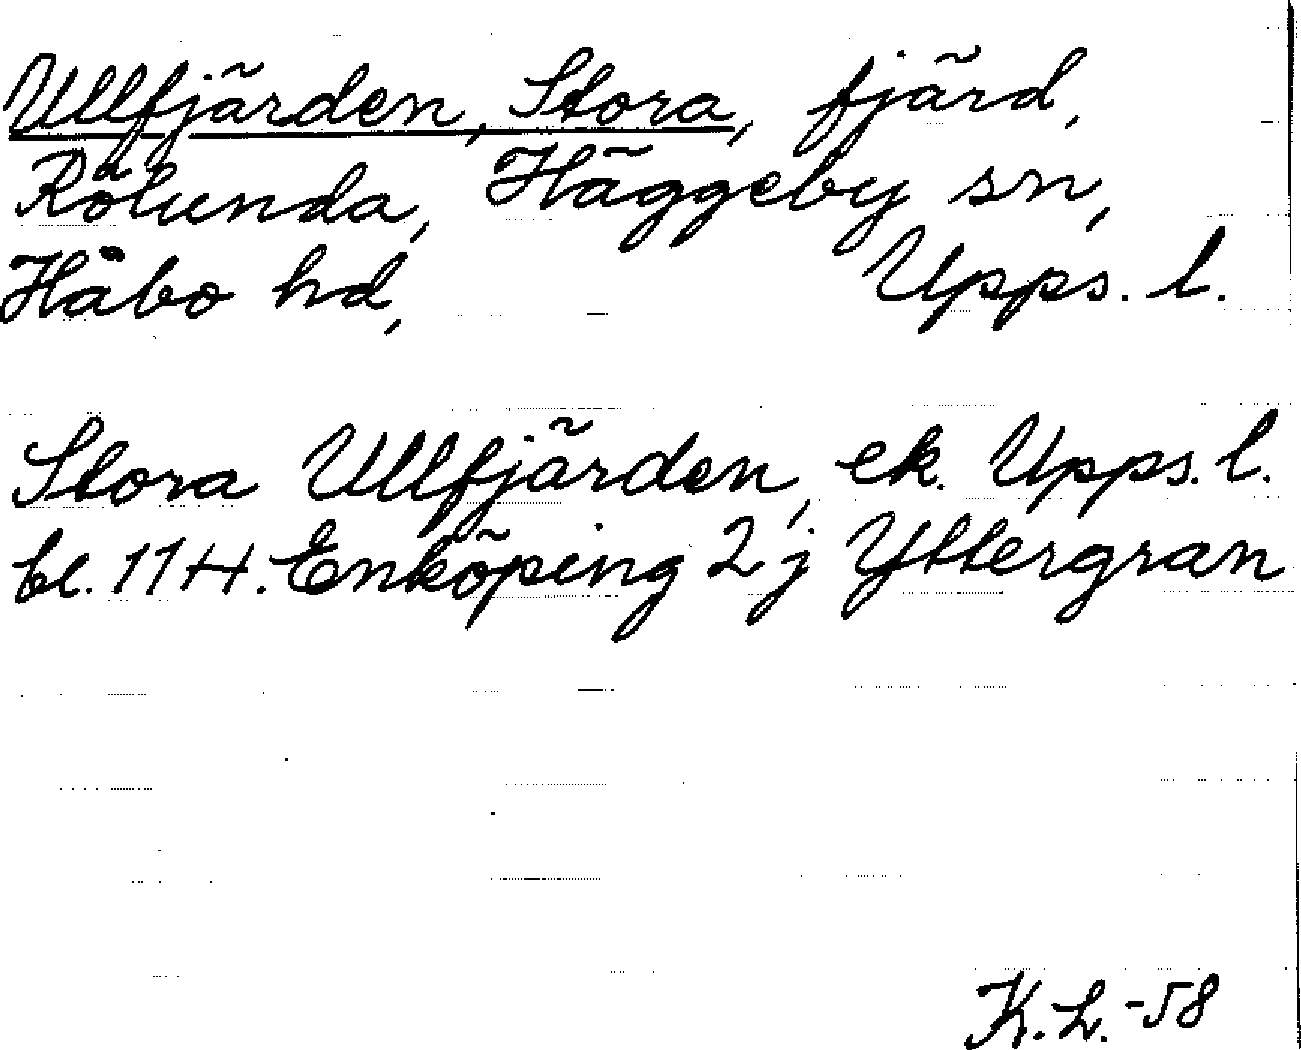 Ullfjärden, Stora, fjärd,
Rölunda, Häggeby sn,
Håbo hd, Upps. l.
Stora Ullfjärden, ek. Upps. l.
bl. 114. Enköping 2 j Yttergran
K. L. -58